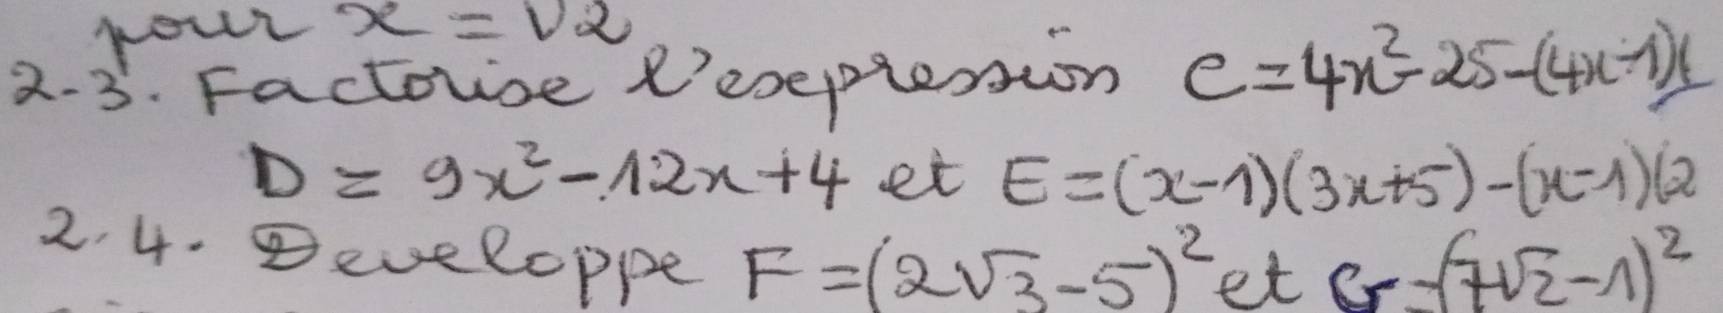 pour x = √2
2.3. Factorise l'expression C = 4x² - 25 - (4x - 1)(
D = 9x² - 12x + 4 et E = (x - 1)(3x + 5) - (x - 1)(2
2.4. Developpe F = (2√3 - 5)² et G = (7√2 - 1)²